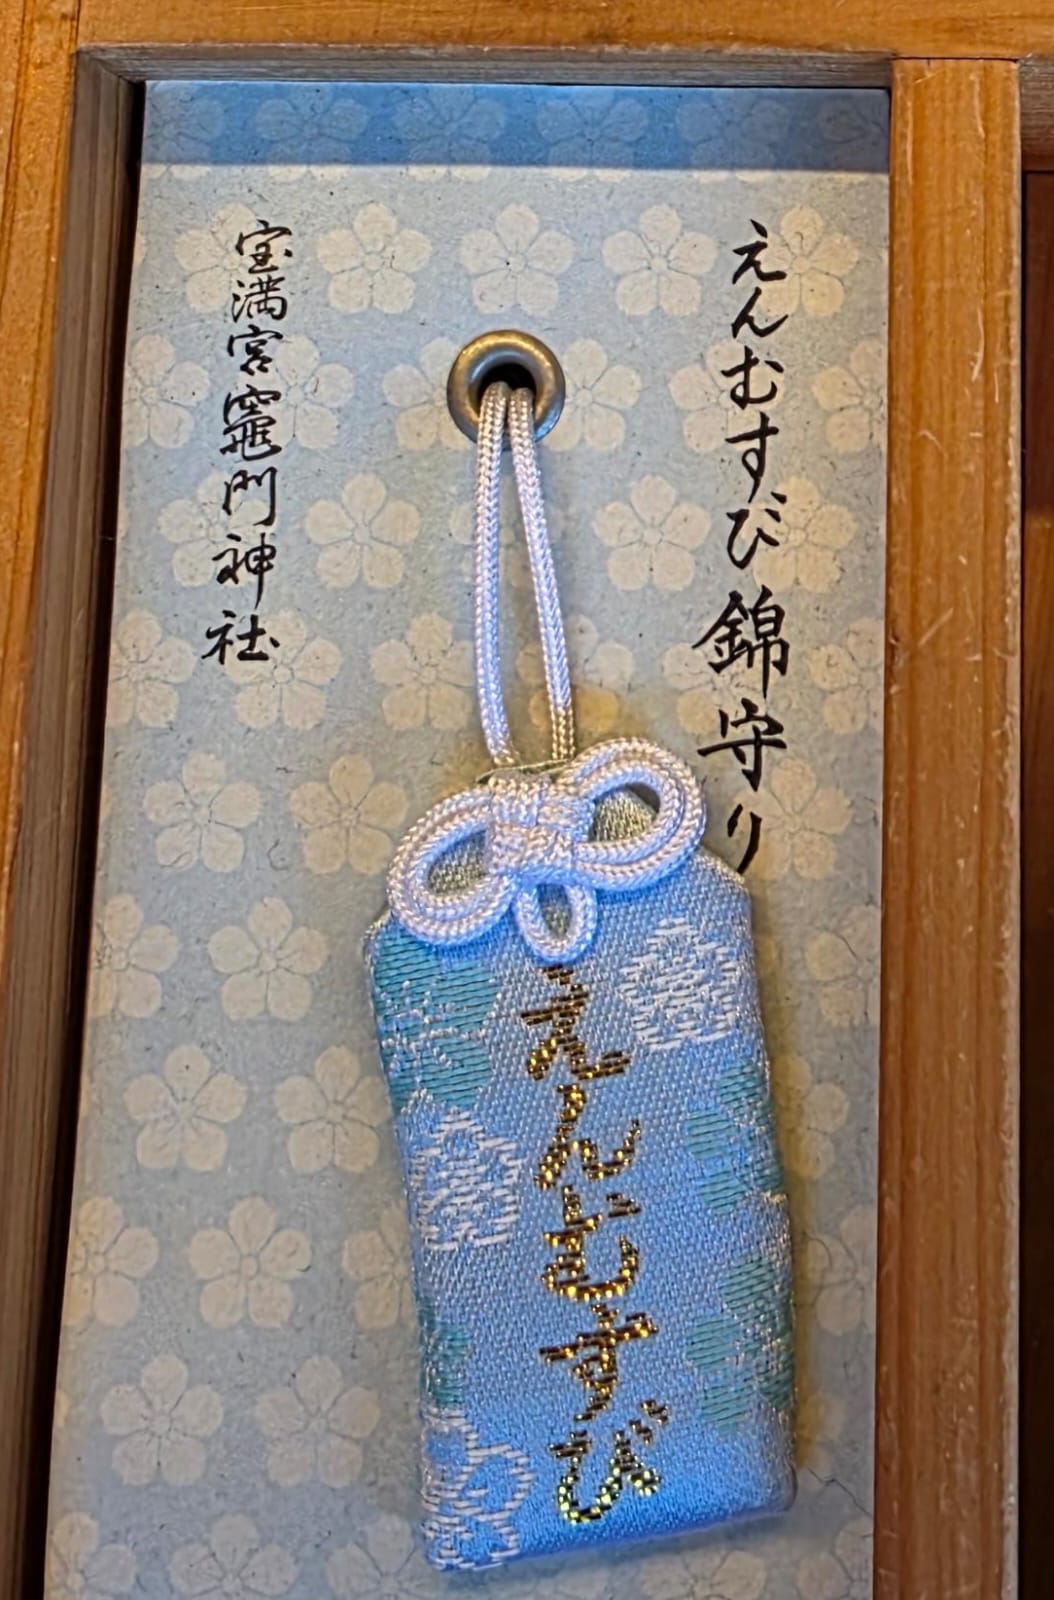 えんむすび錦守り
宝満宮竈門神社
えんむすび